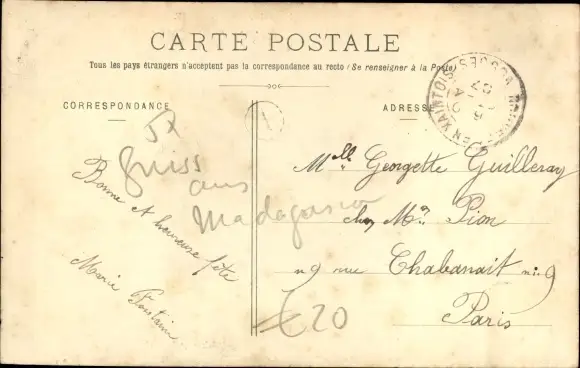 CARTE POSTALE
Tous les pays étrangers n'acceptent pas la correspondance au recto (Se renseigner à la Poste)
CORRESPONDANCE
ADRESSE
EN XAINTOIS VOSGES
Bonne et heureuse fête
Marie
Gruss
aus
Madagascar
Melle Georgette Guilleray
chez Mr Pion
n 9 rue Chabanait n: 9
Paris
£ 20